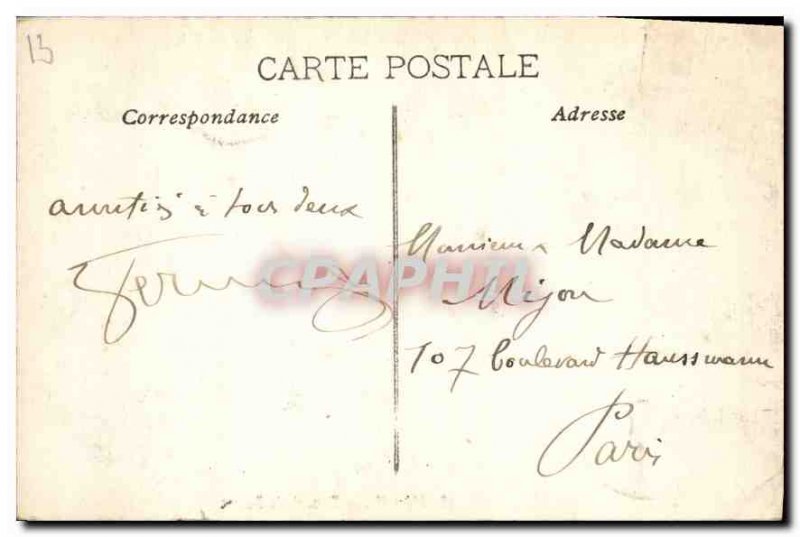 13
CARTE POSTALE
Correspondance
Adresse
à tous deux
Monsieur Madame
Mijon
107 boulevard Haussmann
Paris
CPAPHIL